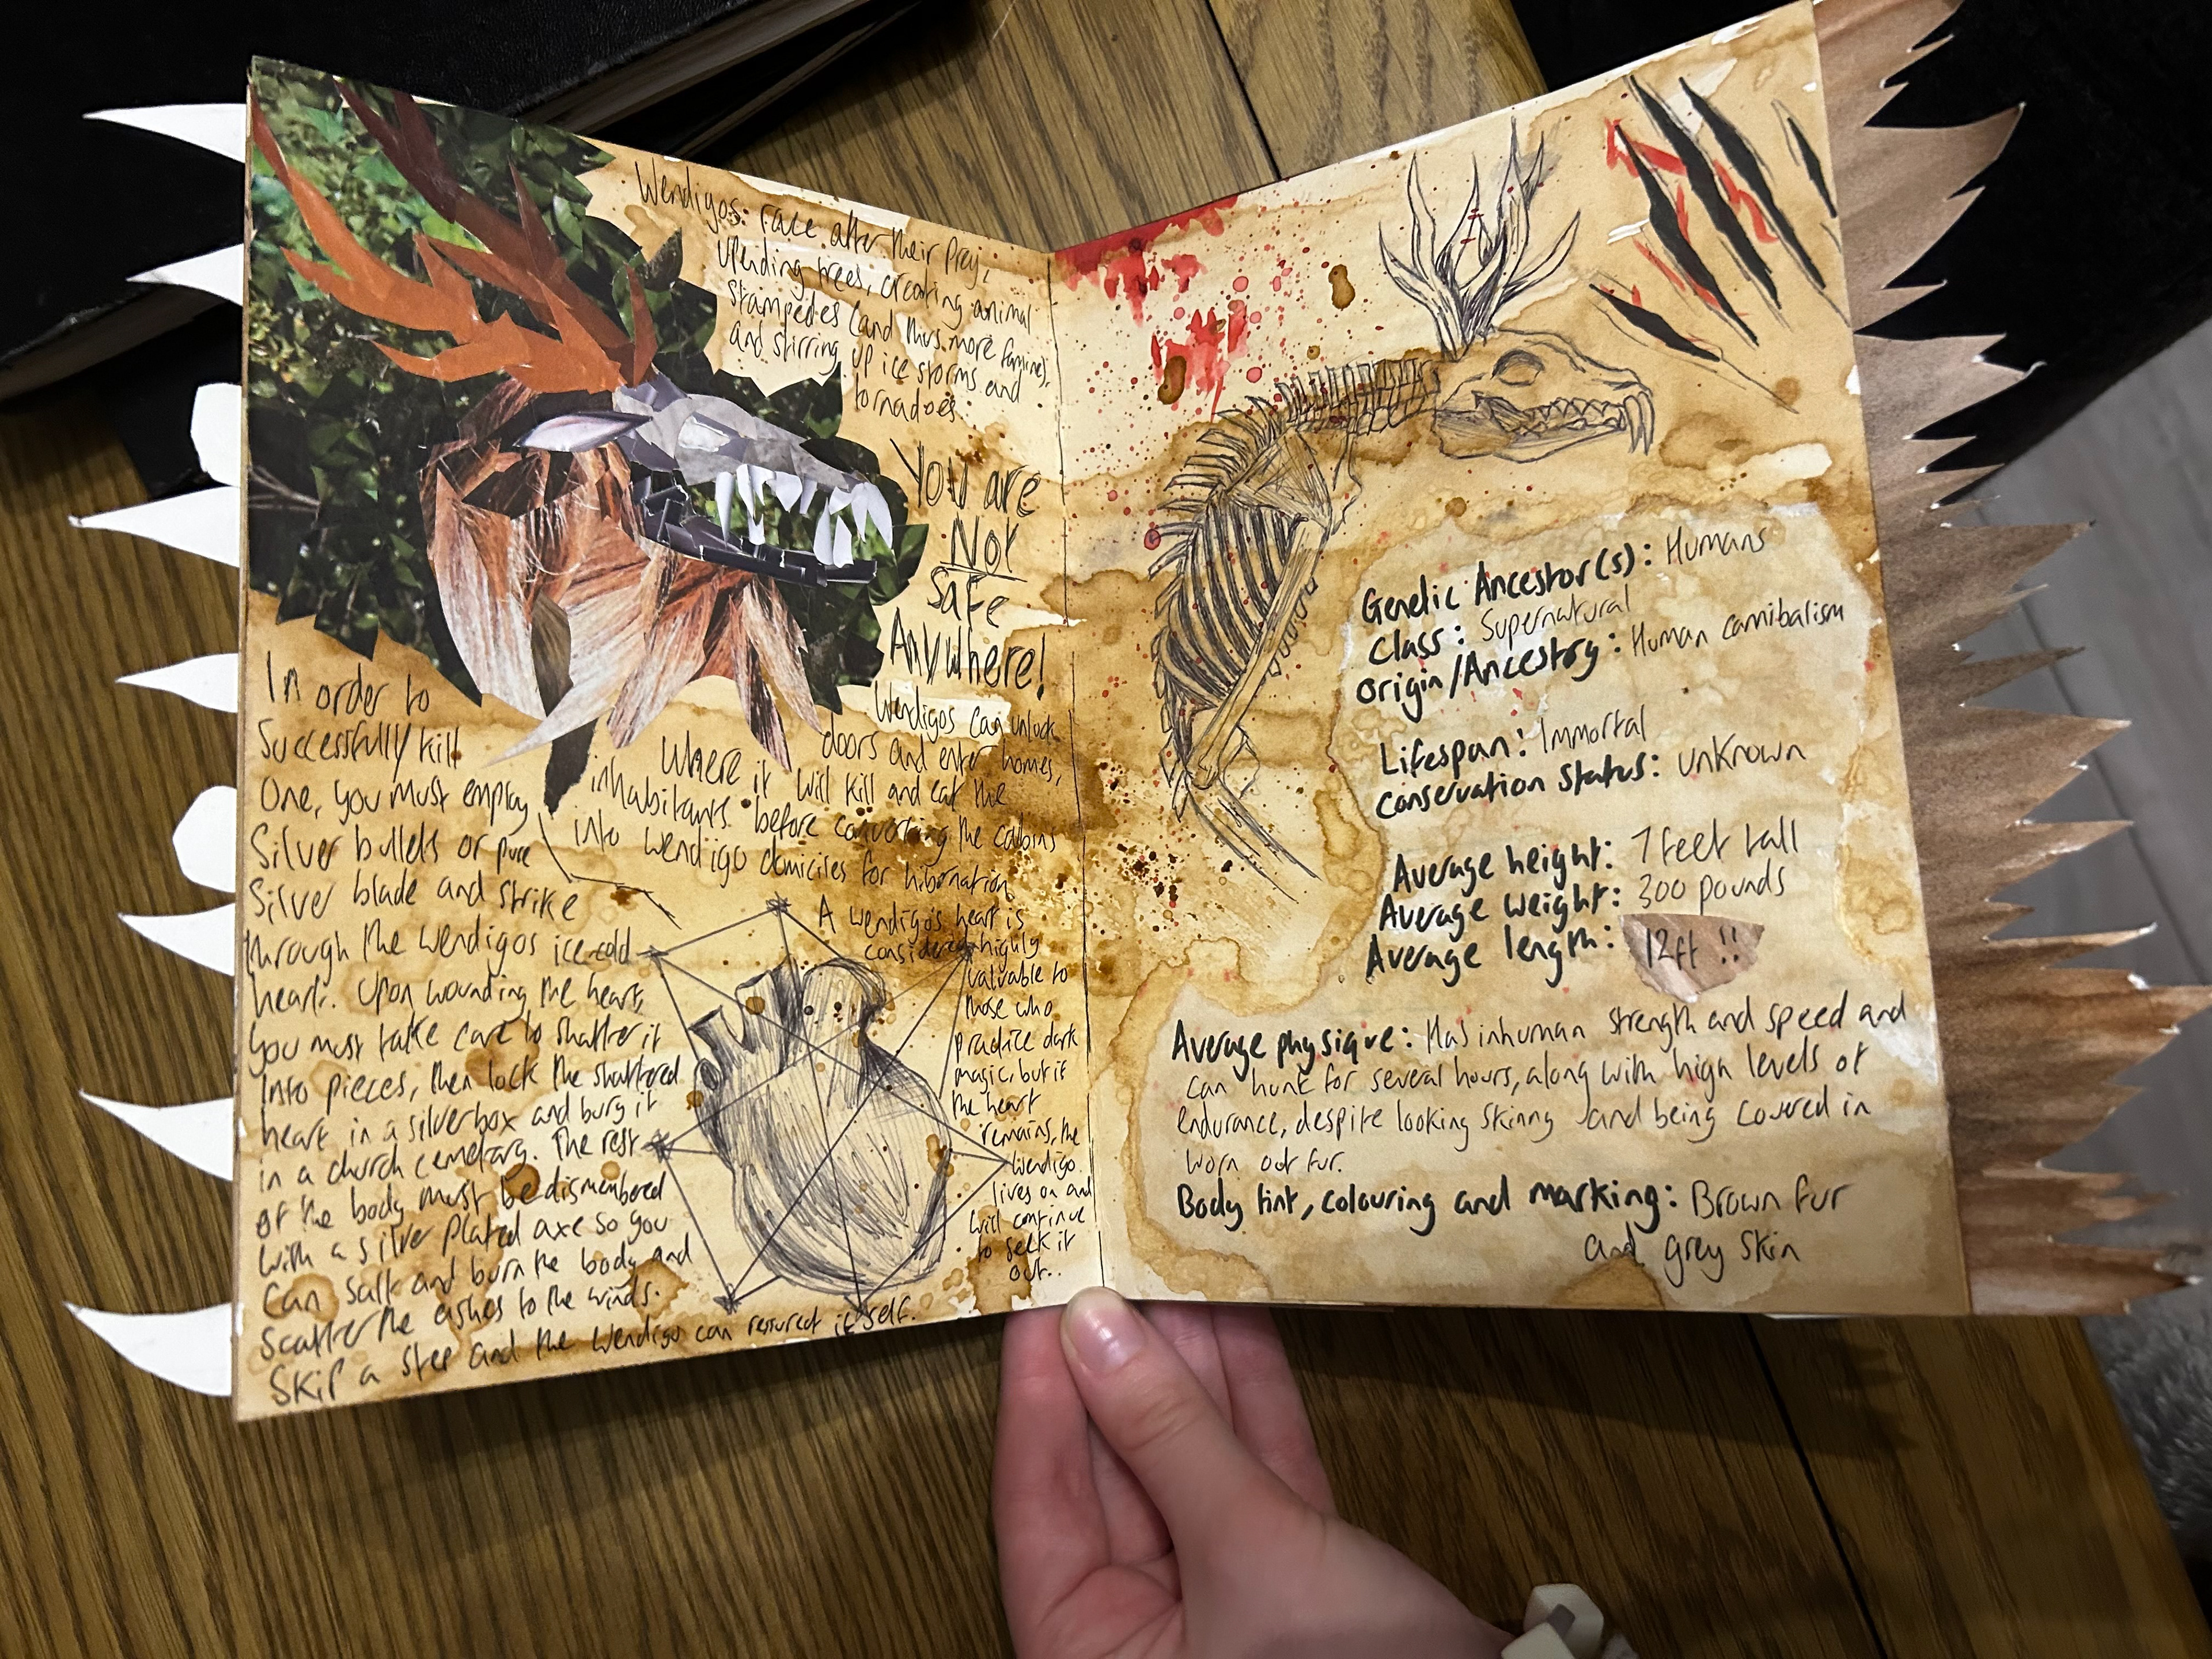 Wendigos: race after their prey,
upending trees, creating animal
stampedes (and thus more famine),
and stirring up ice storms and
tornadoes.
YOU are
Not
Safe
Anywhere!
Wendigos can unlock
doors and enter homes,
Where it will kill and eat the
inhabitants before converting the cabins
into wendigo domiciles for hibernation
In order to
Successfully kill
One, you must employ
Silver bullets or pure
Silver blade and strike
through the wendigos ice-cold
heart. Upon wounding the heart,
you must take care to shatter it
Into pieces, then lock the shattered
heart in a silver box and bury it
in a church cemetary. The rest
of the body must be dismembered
with a silver plated axe so you
Can salt and burn the body and
Scatter the ashes to the winds.
Skip a step and the Wendigo can itself.
A wendigo's heart is
considered highly
valuable to
those who
practice dark
magic, but if
the heart
remains, the
wendigo
lives on and
will continue
to seek it
out..
Genetic Ancestor(s): Humans
Class: Supernatural
Origin/Ancestry: Human cannibalism
Lifespan: Immortal
Conservation Status: unknown
Average height: 7 feet tall
Average weight: 300 pounds
Average length: 12ft !!
Average physique: Has inhuman strength and speed and
can hunt for several hours, along with high levels of
endurance, despite looking skinny and being covered in
worn out fur.
Body tint, colouring and marking: Brown fur
and grey skin